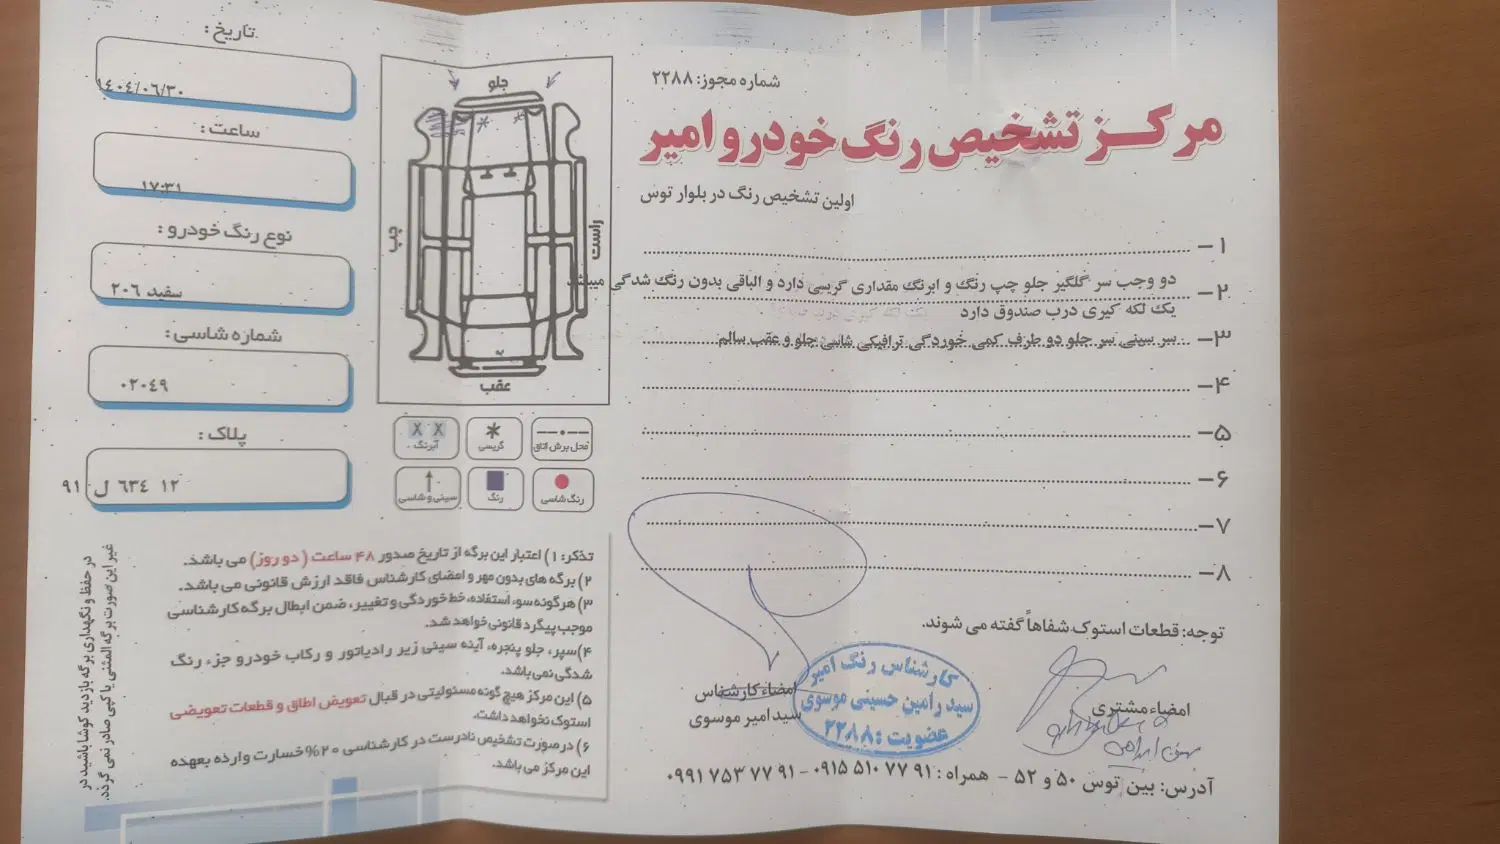 شماره مجوز: ۲۲۸۸
مرکز تشخیص رنگ خودرو امیر
اولین تشخیص رنگ در بلوار توس
۱-
۲- دو وجب سر گلگیر جلو چپ رنگ و ابرنگ مقداری گریسی دارد و الباقی بدون رنگ شدگی میباشد
یک لکه گیری درب صندوق دارد
۳- سر سینی سر جلو دو طرف کمی خوردگی ترافیکی شاسی جلو و عقب سالم
۴-
۵-
۶-
۷-
۸-
توجه: قطعات استوک شفاهاً گفته می شوند.
امضاء مشتری
امضاء کارشناس
سید امیر موسوی
کارشناس رنگ امیر
سید رامین حسینی موسوی
عضویت: ۲۲۸۸
آدرس: بین توس ۵۰ و ۵۲ - همراه: ۰۹۱۵ ۵۱۰ ۷۷ ۹۱ - ۰۹۹۱ ۷۵۳ ۷۷ ۹۱
جلو
چپ
راست
عقب
محل برش اتاق
گریسی
آبرنگ
رنگ شاسی
رنگ
سینی و شاسی
تاریخ:
۱۴۰۴/۰۶/۳۰
ساعت:
۱۷:۳۱
نوع رنگ خودرو:
سفید ۲۰۶
شماره شاسی:
۰۲۰۴۹
پلاک:
۱۲ ۶۳۴ ل ۹۱
تذکر: ۱) اعتبار این برگه از تاریخ صدور ۴۸ ساعت (دو روز) می باشد.
۲) برگه های بدون مهر و امضای کارشناس فاقد ارزش قانونی می باشد.
۳) هرگونه سوء استفاده، خط خوردگی و تغییر، ضمن ابطال برگه کارشناسی
موجب پیگرد قانونی خواهد شد.
۴) سپر، جلو پنجره، آینه سینی زیر رادیاتور و رکاب خودرو جزء رنگ
شدگی نمی باشد.
۵) این مرکز هیچ گونه مسئولیتی در قبال تعویض اطاق و قطعات تعویضی
استوک نخواهد داشت.
۶) در صورت تشخیص نادرست در کارشناسی ۲۰% خسارت وارده بعهده
این مرکز می باشد.
در حفظ و نگهداری برگه بازدید کوشا باشید در
غیر این صورت برگه المثنی یا کپی صادر نمی گردد.